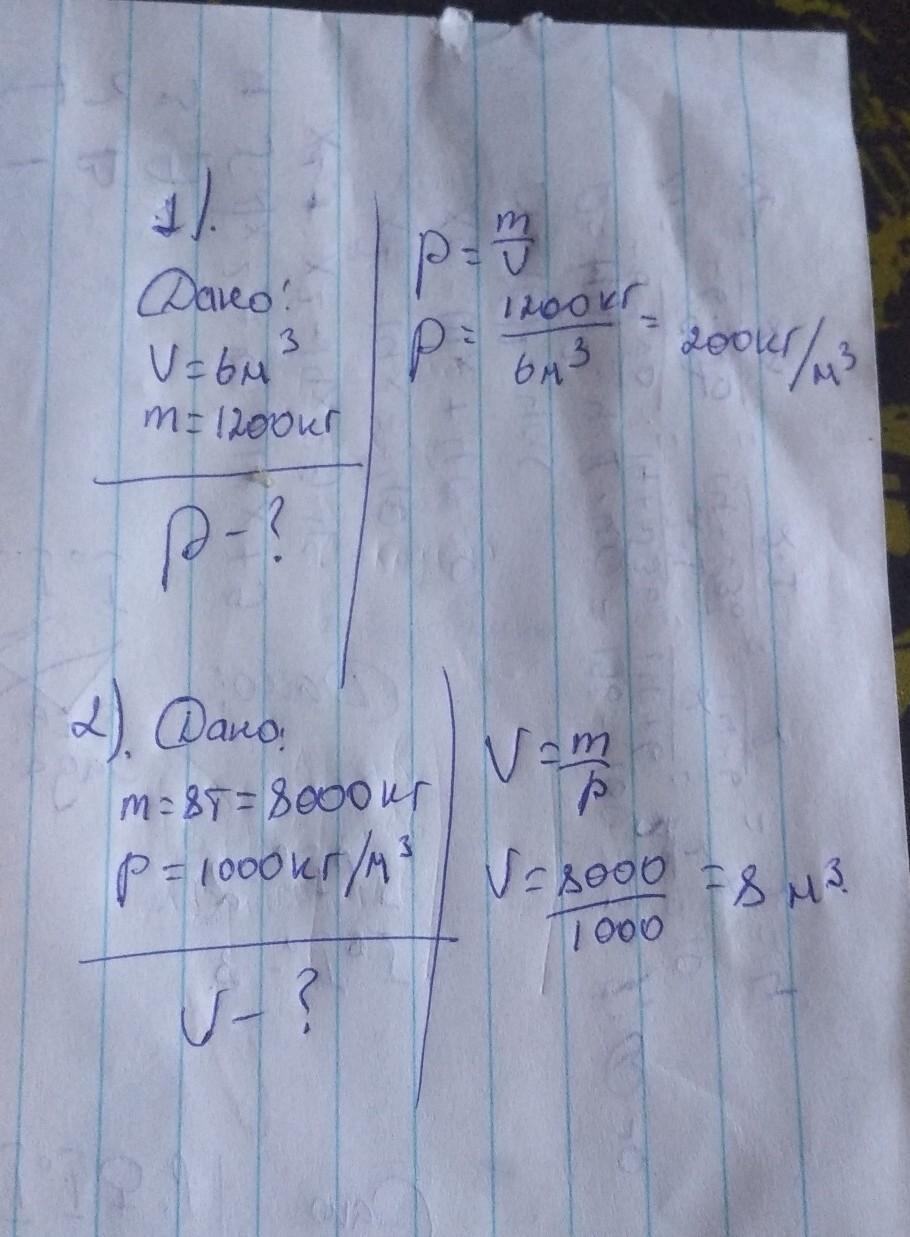 1).
Дано:
V=6м³
m=1200кг
ρ-?
ρ=m/V
ρ=1200кг/6м³=200кг/м³
2). Дано:
m=8т=8000кг
ρ=1000кг/м³
V-?
V=m/ρ
V=8000/1000=8м³